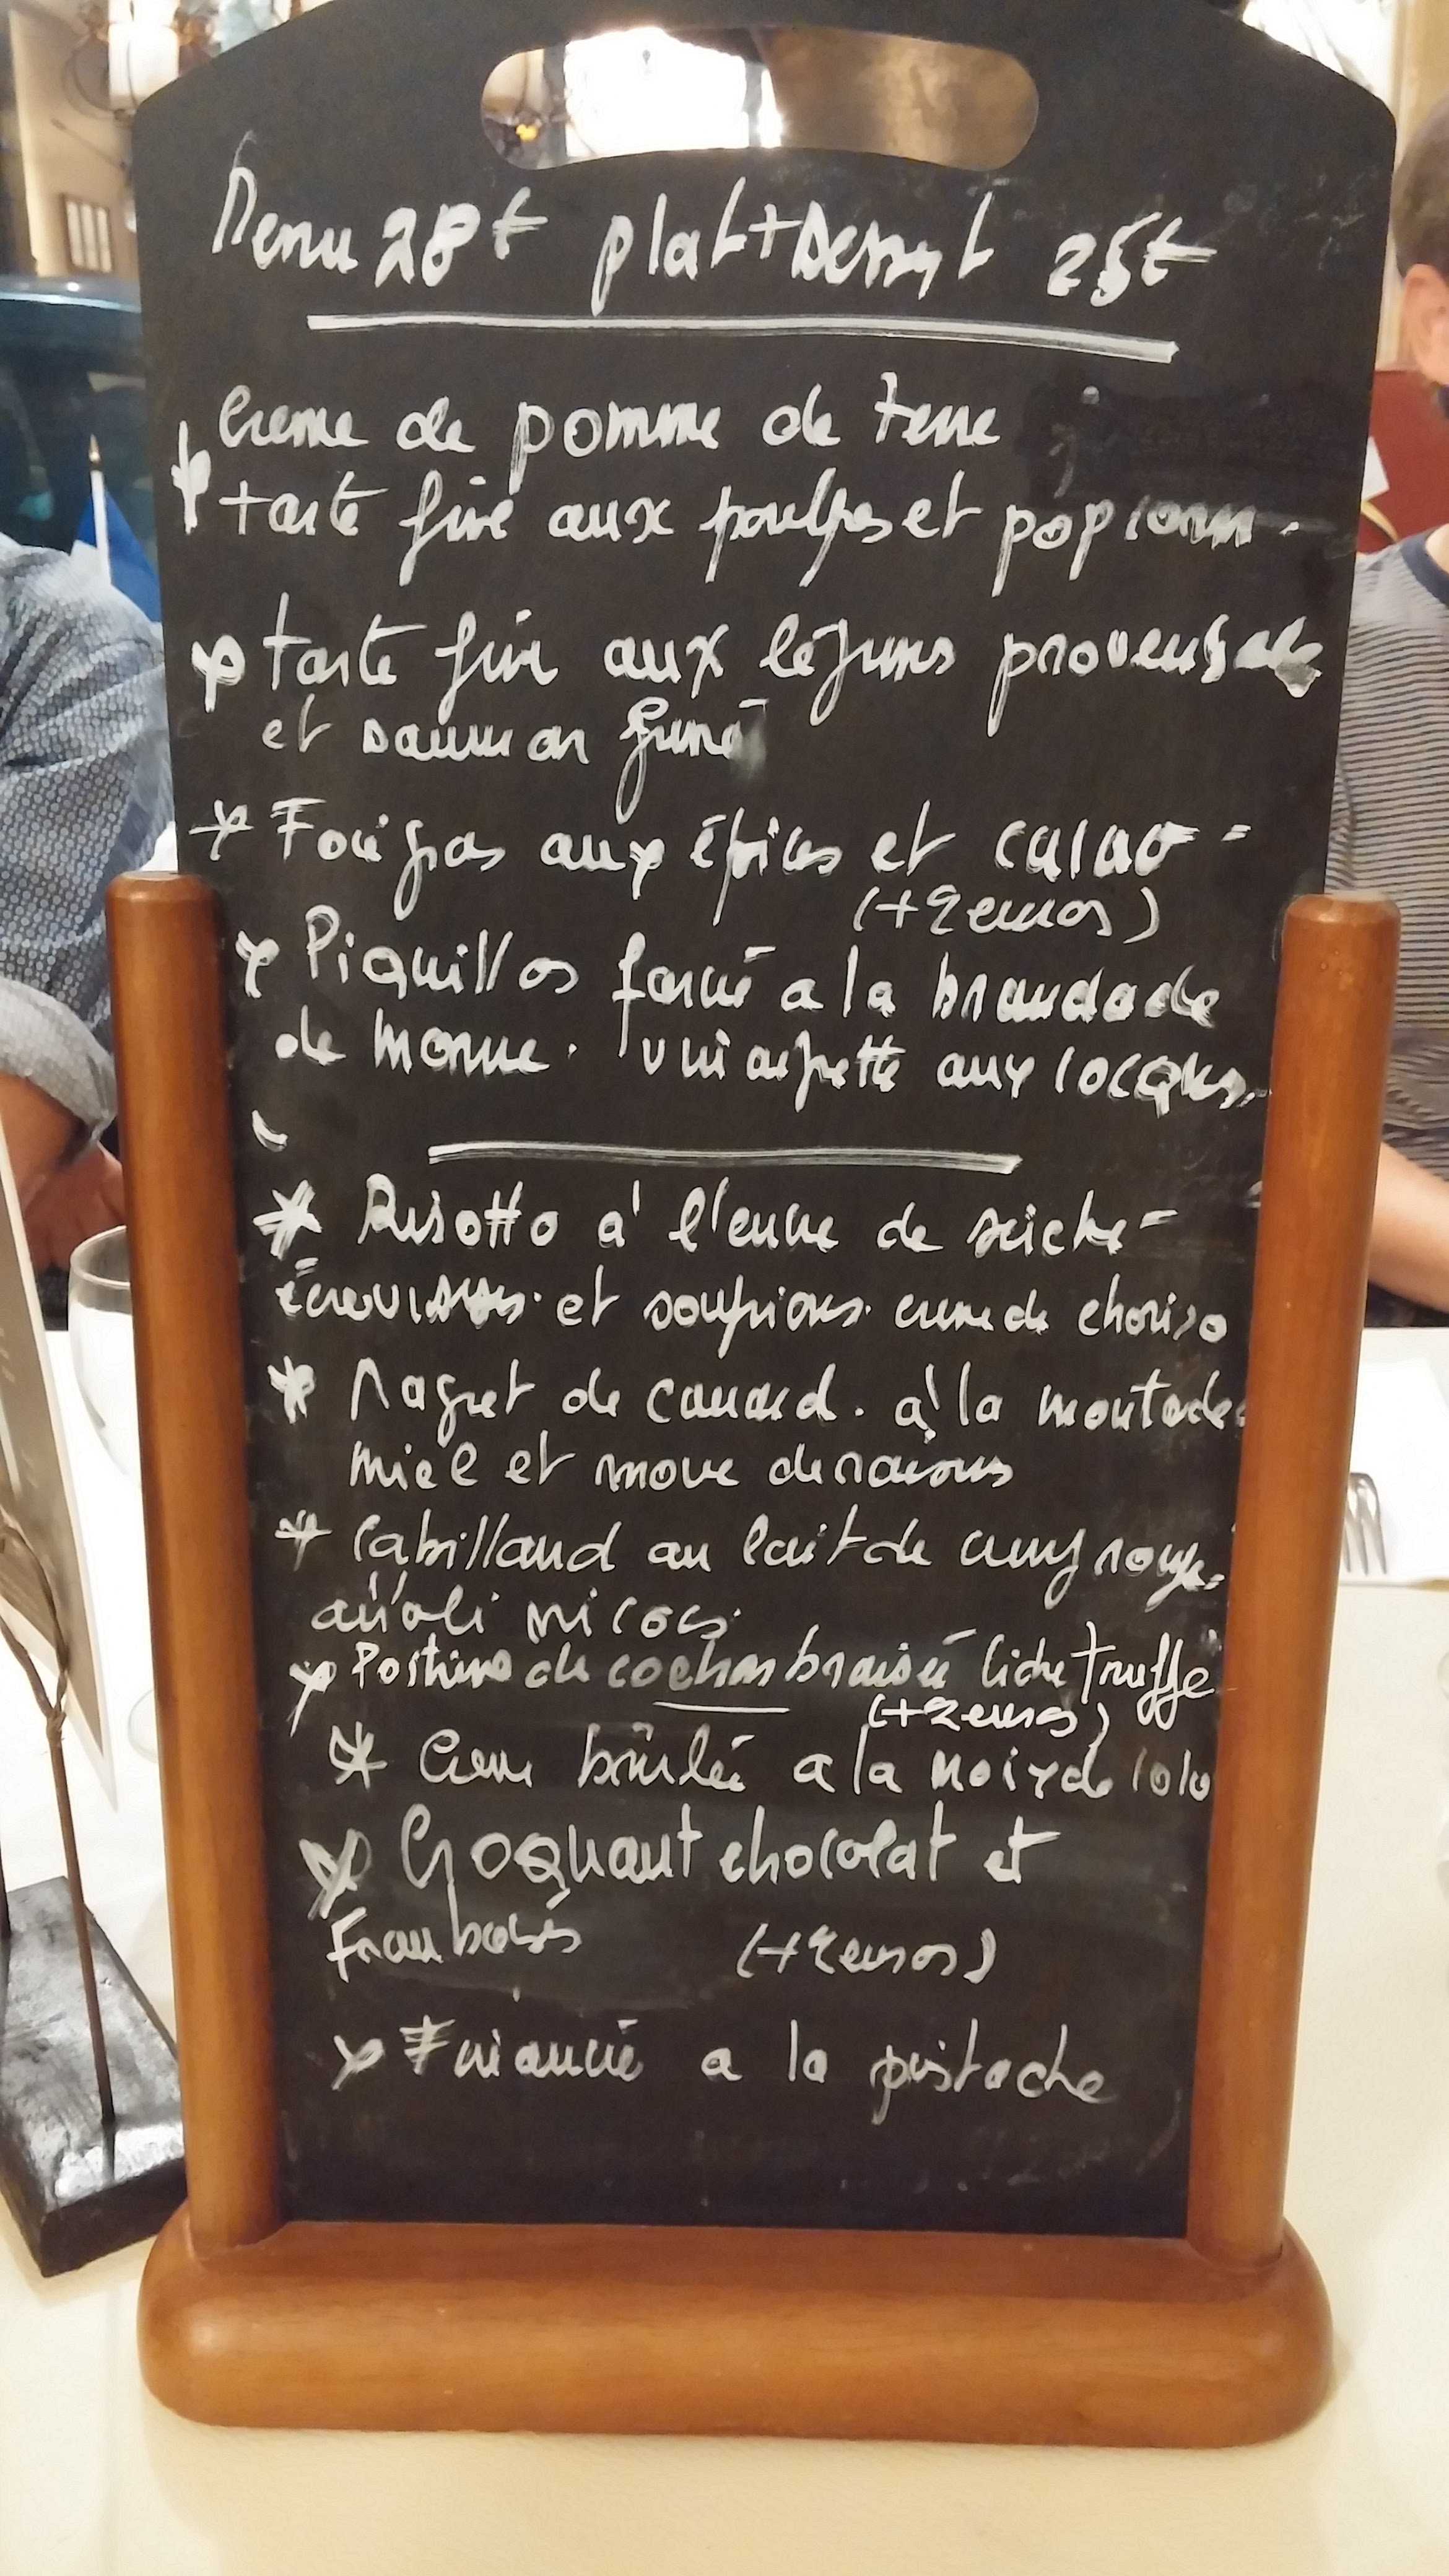 Menu 28€ plat+Dessert 25€
Creme de pomme de terre
* tarte fine aux poulpes et pop corn.
* tarte fine aux legumes
et saumon fumé
* Foie gras aux épices et cacao -
(+2 euros)
* Piquillos farcié a la brandade
de morue. vinaigrette aux cocques.
* Risotto à l'encre de seiche -
écrevisses. et soupions. creme de choriso
* Magret de canard. à la moutarde
miel et de raisins
* Cabillaud au lait de curry rouge.
aïoli
* de cochon braisée truffe
(+2 euros)
* Creme brûlée a la noix de coco
* Croquant chocolat et
Framboises (+2 euros)
* a la pistache